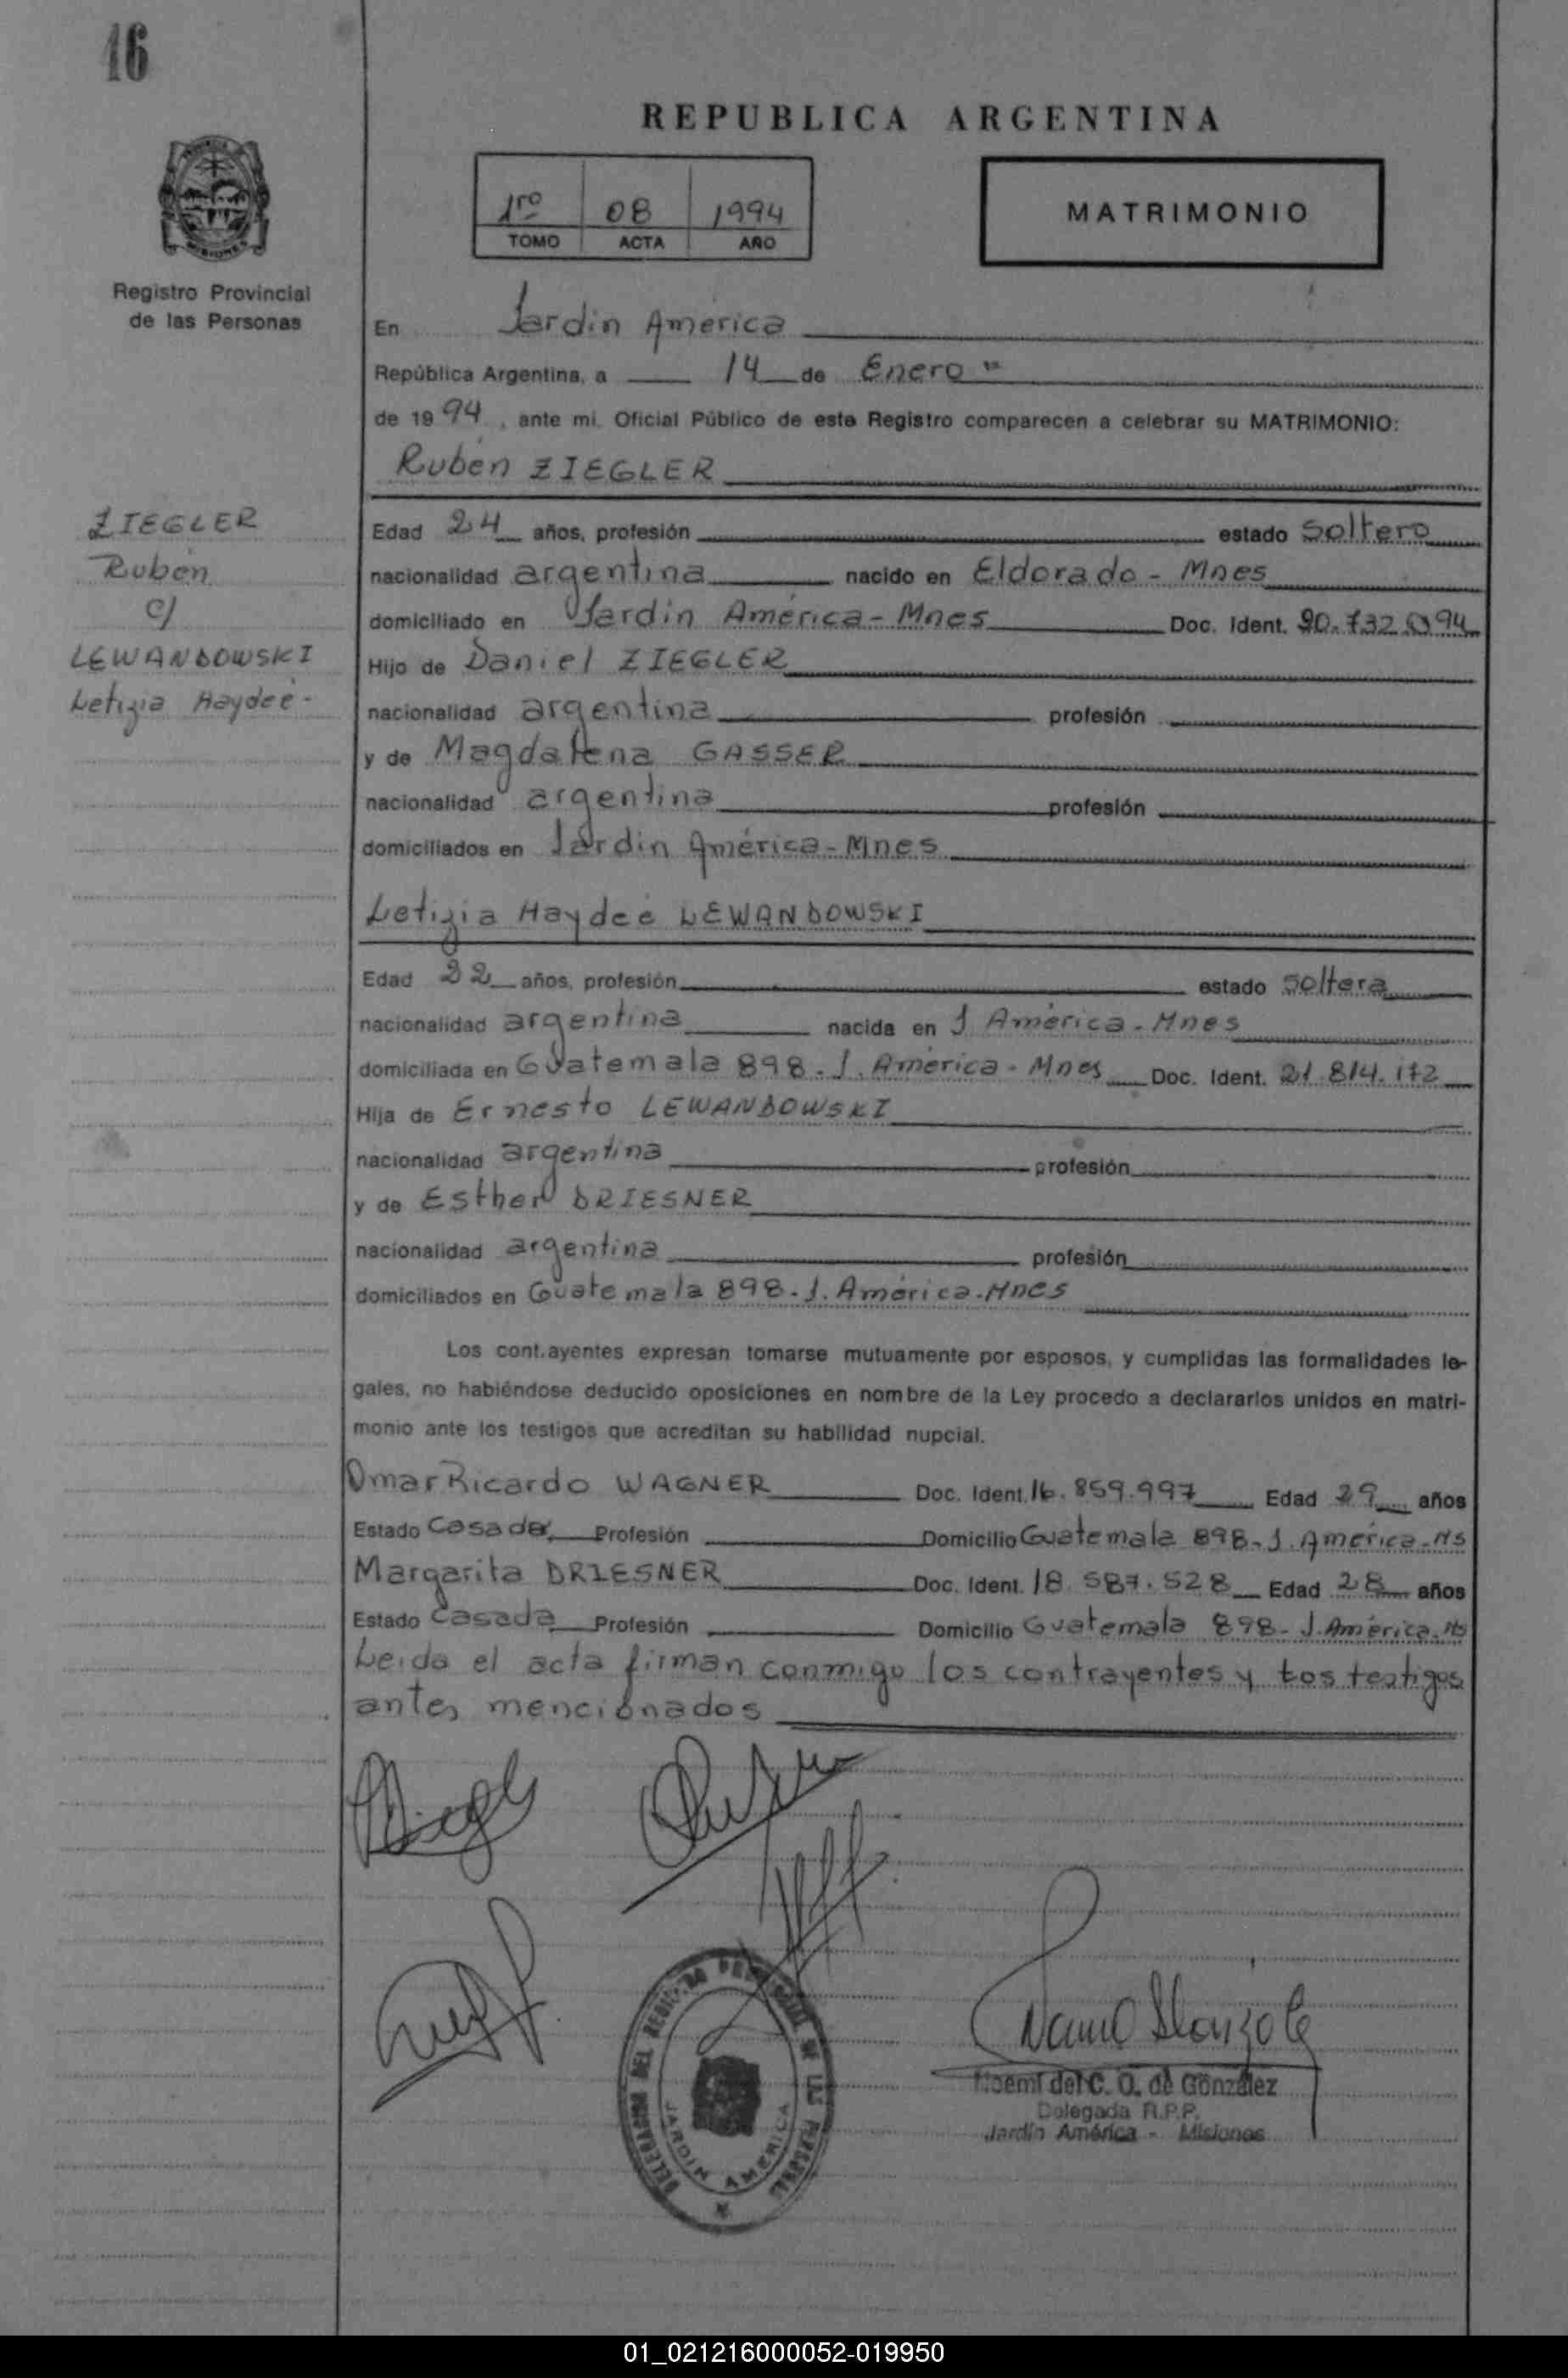 16
REPUBLICA ARGENTINA
1ro 08 1994
TOMO ACTA AÑO
MATRIMONIO
Registro Provincial
de las Personas
En Jardin América
República Argentina, a 14 de Enero
de 1994, ante mi, Oficial Público de este Registro comparecen a celebrar su MATRIMONIO:
Rubén ZIEGLER
ZIEGLER
Rubén
c/
LEWANDOWSKI
Letizia Haydeé-
Edad 24 años, profesión estado soltero
nacionalidad argentina nacido en Eldorado - Mnes
domiciliado en Jardin América - Mnes Doc. Ident.
Hijo de Daniel ZIEGLER
nacionalidad argentina profesión
y de Magdalena GASSER
nacionalidad argentina profesión
domiciliados en Jardin América - Mnes
Letizia Haydeé LEWANDOWSKI
Edad 22 años, profesión estado soltera
nacionalidad argentina nacida en J América - Mnes
domiciliada en Guatemala 898 - J. América - Mnes Doc. Ident. 21.814.172
Hija de Ernesto LEWANDOWSKI
nacionalidad argentina profesión
y de Esther DRIESNER
nacionalidad argentina profesión
domiciliados en Guatemala 898 - J. América - Mnes
Los cont.ayentes expresan tomarse mutuamente por esposos, y cumplidas las formalidades le-
gales, no habiéndose deducido oposiciones en nombre de la Ley procedo a declararlos unidos en matri-
monio ante los testigos que acreditan su habilidad nupcial.
Omar Ricardo WAGNER Doc. Ident. 16.859.997 Edad 29 años
Estado Casado Profesión Domicilio Guatemala 898 - J. América - Ms
Margarita DRIESNER Doc. Ident. 18.587.528 Edad 28 años
Estado Casada Profesión Domicilio Guatemala 898 - J. América. Ms
Leida el acta firman conmigo los contrayentes y los testigos
antes mencionados
DELEGACION DEL REGISTRO PROVINCIAL DE LAS PERSONAS
JARDIN AMERICA
Noemi del C. O. de González
Delegada R.P.P.
Jardín América - Misiones
01_021216000052-019950